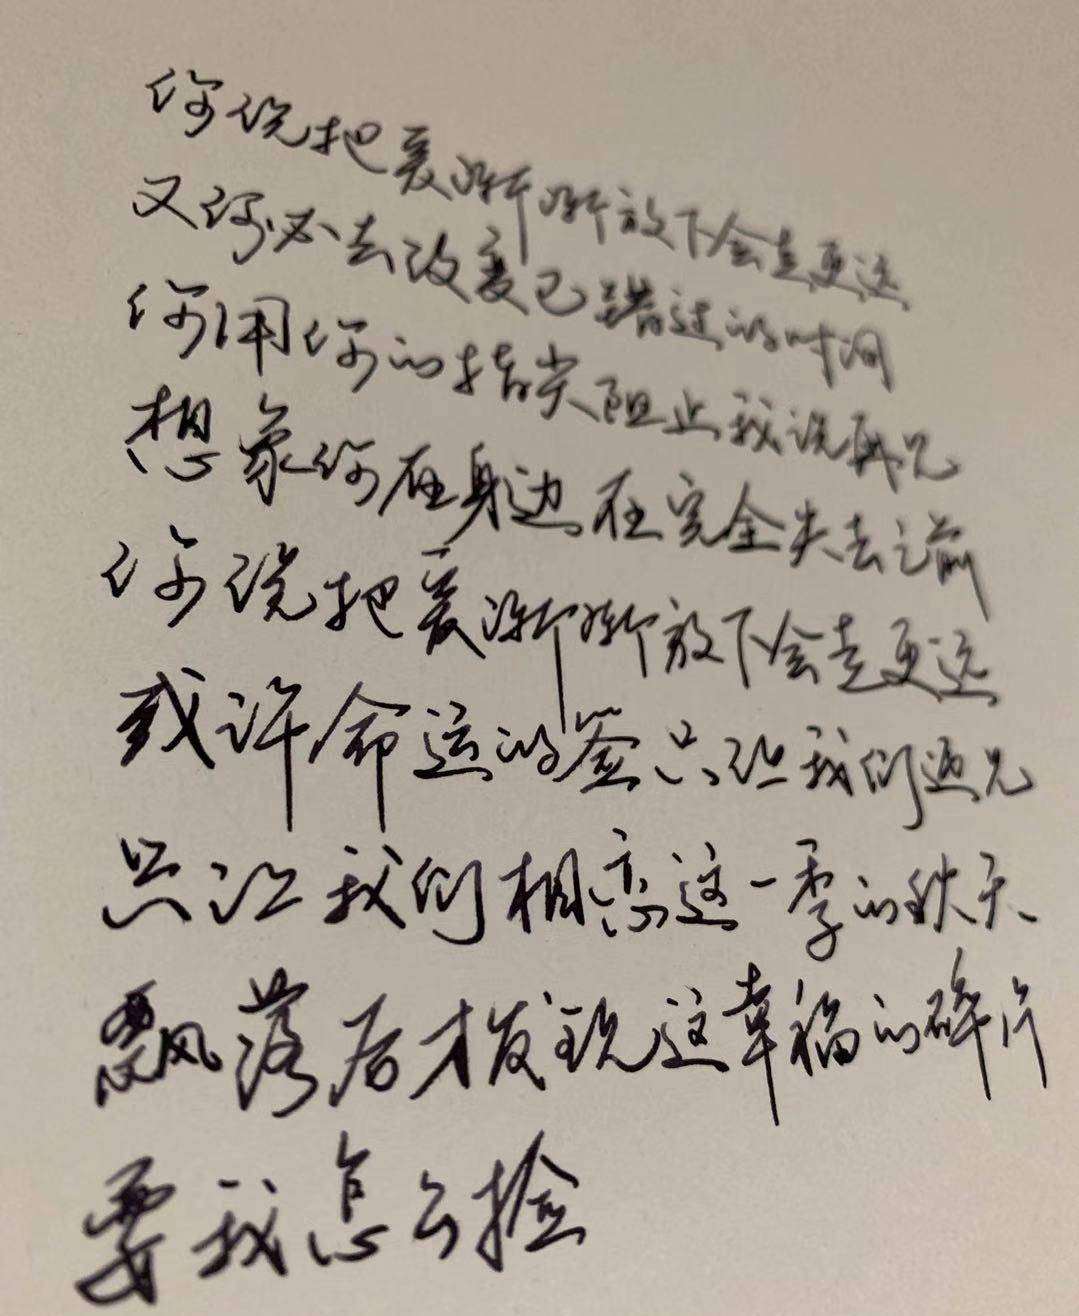 你说把爱渐渐放下会走更远
又何必去改变已错过的时间
你用你的指尖阻止我说再见
想象你在身边在完全失去之前
你说把爱渐渐放下会走更远
或许命运的签只让我们遇见
只让我们相恋这一季的秋天
飘落后才发现这幸福的碎片
要我怎么捡